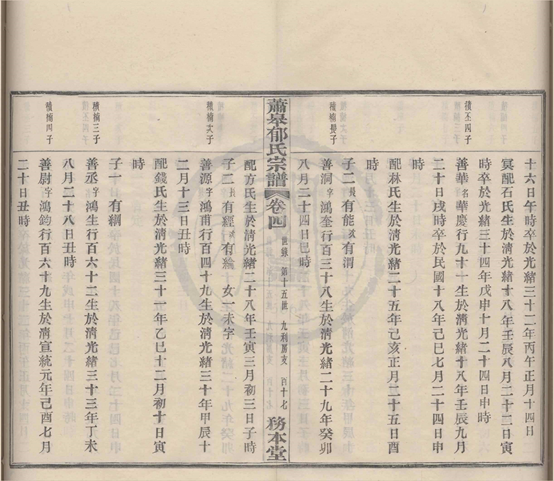 十六日午時卒於光緒三十二年丙午正月十四日
冥配石氏生於清光緒十八年壬辰八月二十二日寅
時卒於光緒三十四年戊申十月二十四日申時
積丕四子
善華名華慶行九十一生於清光緒十八年壬辰九月
二十日戌時卒於民國十八年己巳七月二十四日申
時
配林氏生於清光緒二十五年己亥正月二十五日酉
時
子二長有能次有渭
積楠長子
善洞字鴻奎行百三十八生於清光緒二十九年癸卯
八月二十四日巳時
蕭皋郁氏宗譜
卷四
世錄
第十五世
九利房支
百十七
務本堂
配方氏生於清光緒二十八年壬寅三月初三日子時
子二長有經次有綸
女一未字
積楠次子
善源字鴻甫行百四十九生於清光緒三十年甲辰十
二月十三日丑時
配錢氏生於清光緒三十一年乙巳十二月初十日寅
時
子一有綱
積楠三子
善丞字鴻生行百六十二生於清光緒三十三年丁未
八月二十八日丑時
積楠四子
善尉字鴻鈞行百六十九生於清宣統元年己酉七月
二十日丑時